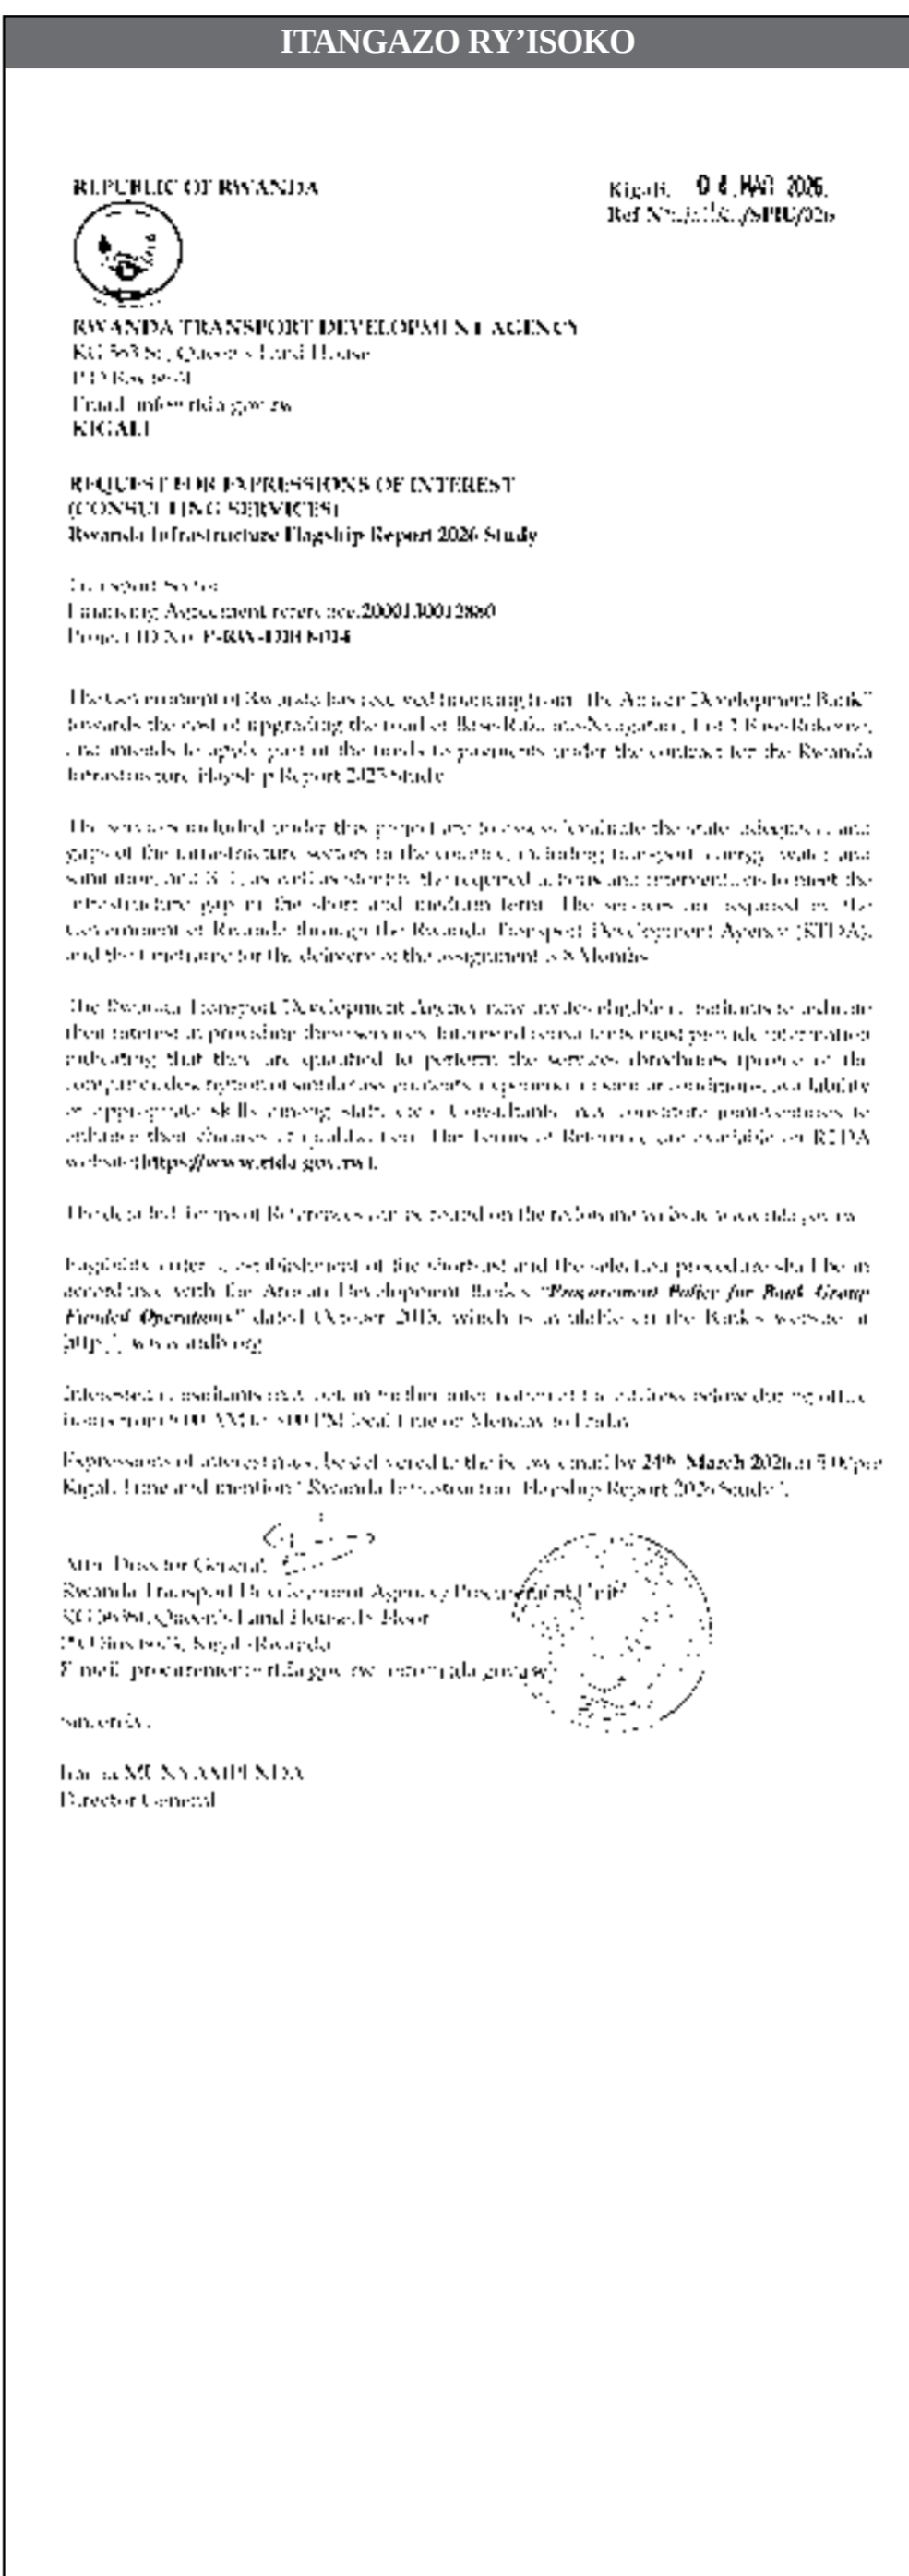 ITANGAZO RY’ISOKO
REPUBLIC OF RWANDA
Kigali, MAR 2026
/SPIU/026
RWANDA TRANSPORT DEVELOPMENT AGENCY
KG 563 St, Queen's Land House
Email: info@rtda.gov.rw
KIGALI
REQUEST FOR EXPRESSIONS OF INTEREST
(CONSULTING SERVICES)
Rwanda Infrastructure Flagship Report 2026 Study
Transport Sector
Financing Agreement reference:
Project ID No:
The Government of Rwanda has received financing from the African Development Bank"
towards the cost of upgrading the road of
and intends to apply part of the funds to payments under the contract for the Rwanda
Infrastructure Flagship Report Study
The services included under this project are to assess/evaluate the state, adequacy and
gaps of the infrastructure sectors in the country, including transport, energy, water and
sanitation, and as well as identify the required actions and interventions to meet the
infrastructure gap in the short and medium term. The services are required by the
Government of Rwanda through the Rwanda Transport Development Agency (RTDA),
and the timeframe for the delivery of the assignment is 8 Months
The Rwanda Transport Development Agency now invites eligible consultants to indicate
their interest in providing these services. Interested consultants must provide information
indicating that they are qualified to perform the services (brochures, of the
company, description of similar assignments, experience in similar conditions, availability
of appropriate skills among staff, etc.). Consultants may constitute joint-ventures to
enhance their chances of qualification. The Terms of Reference are available on RTDA
website(https://www.rtda.gov.rw).
The detailed Terms of References can be found on the website
Eligibility criteria, establishment of the shortlist and the selection procedure shall be in
accordance with the African Development Bank's "Procurement Policy for Bank Group
Funded Operations" dated October 2015, which is available on the Bank's website at
Interested consultants may obtain further information at the address below during office
hours from AM to 5:00 PM local time on Monday to Friday
Expressions of interest must be delivered to the below email by 24th March 2026 at
Kigali Time and mention "Rwanda Infrastructure Flagship Report 2026 Study".
Attn: Director General,
Rwanda Transport Development Agency/Procurement Unit
Queen's Land House, Floor
Kigali-Rwanda
E-mail: procurement@rtda.gov.rw
Sincerely,
MUNYAMPENDA
Director General